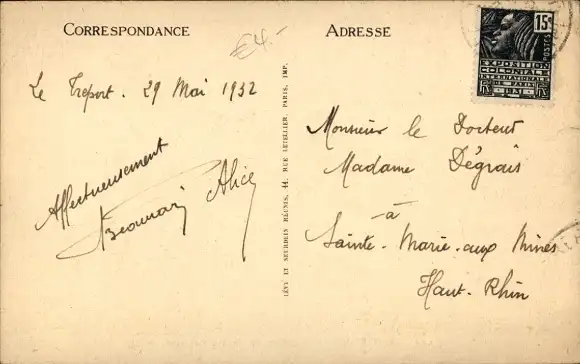 CORRESPONDANCE
€4.-
Le Tréport. 29 Mai 1932
Affectueusement
Alice
LÉVY ET NEURDEIN RÉUNIS, 44, RUE LETELLIER, PARIS, IMP.
ADRESSE
15c
POSTES
EXPOSITION
COLONIALE
INTERNATIONALE
DE PARIS
1931
Monsieur le Docteur
Madame Dégrais
à
Sainte-Marie-aux Mines
Haut-Rhin